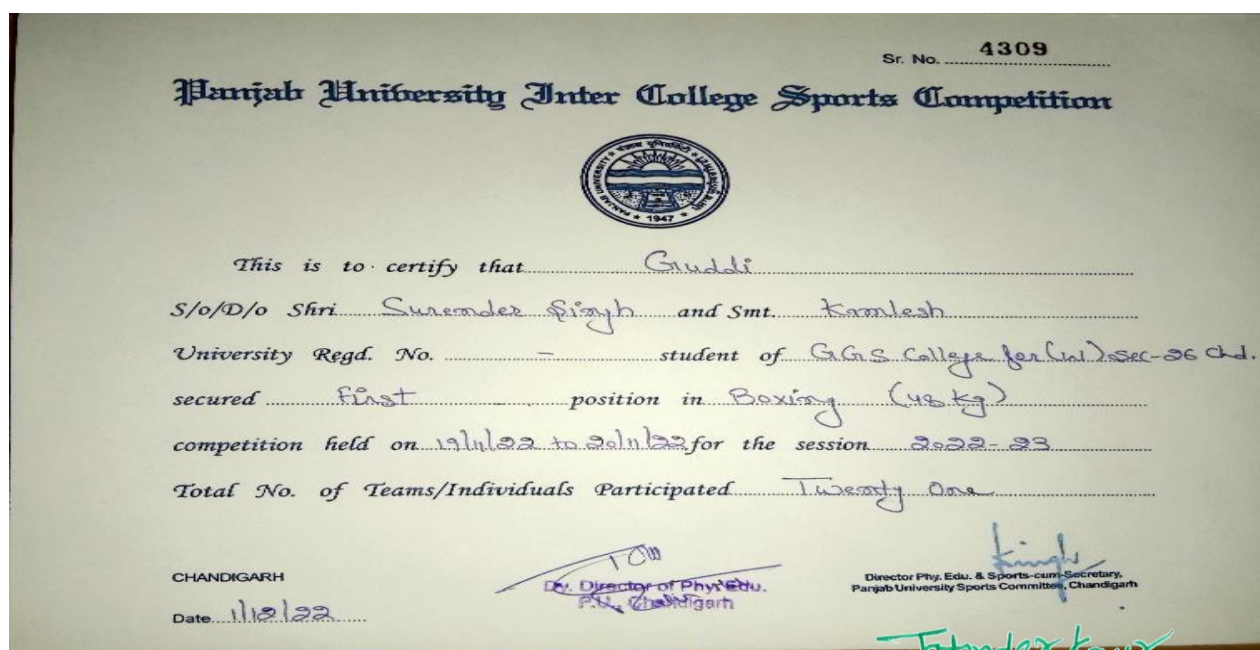 Sr. No. 4309
Panjab University Inter College Sports Competition
PANJAB UNIVERSITY
1947
This is to certify that Guddi
S/o/D/o Shri Surender Singh and Smt. Kamlesh
University Regd. No. – student of GGS College for (W) Sec-26 Chd.
secured First position in Boxing (48 kg)
competition held on 19/11/22 to 20/11/22 for the session 2022-23
Total No. of Teams/Individuals Participated Twenty One
CHANDIGARH
Dy. Director of Phy. Edu.
P.U., Chandigarh
Director Phy. Edu. & Sports-cum-Secretary,
Panjab University Sports Committee, Chandigarh
Date 1/12/22